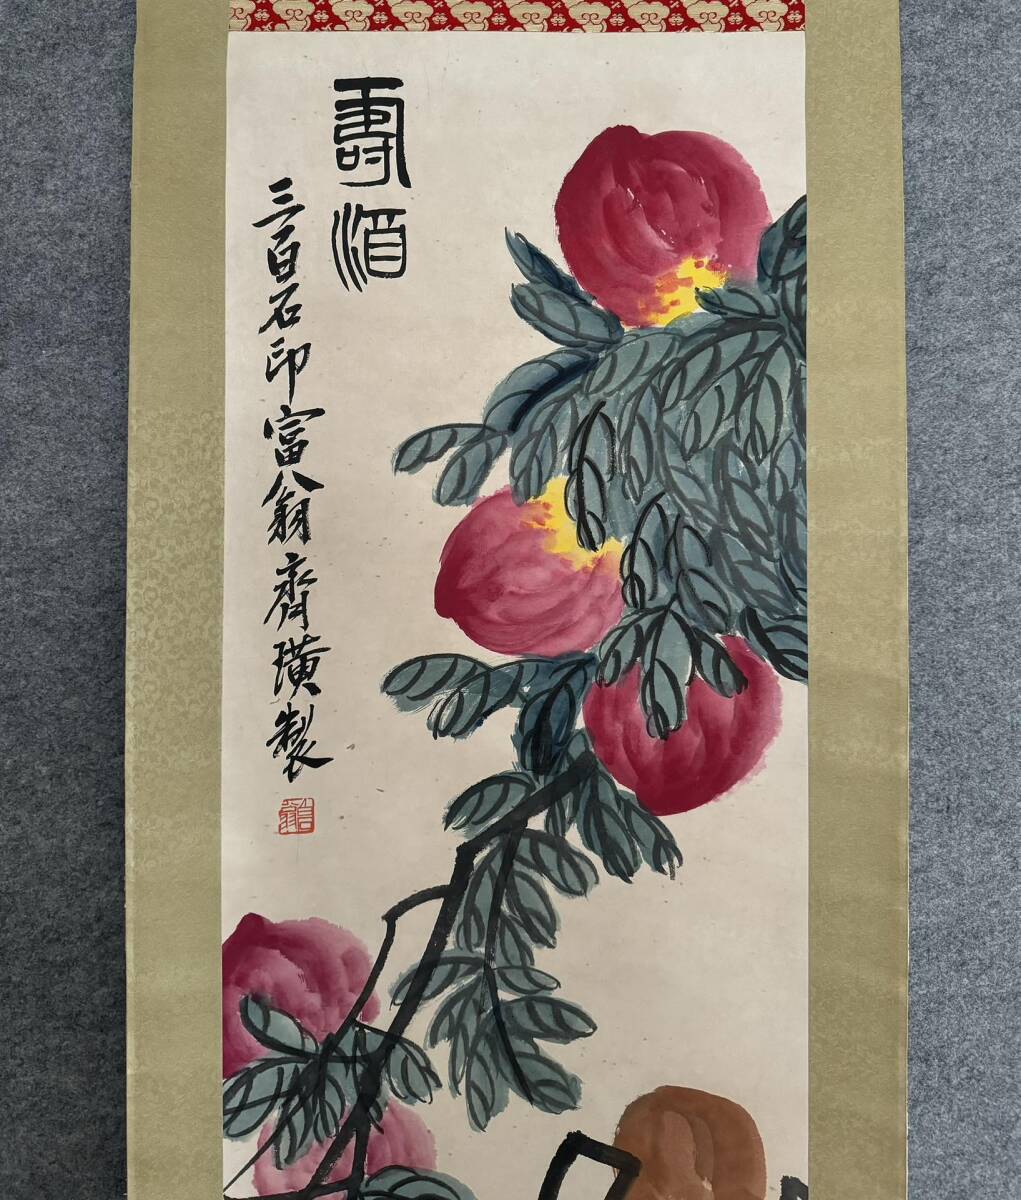 壽酒
三百石印富翁齊璜製